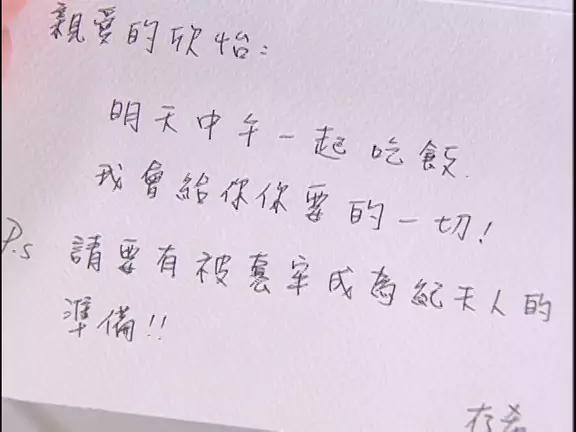 親愛的欣怡:
明天中午一起吃飯.
我會給你你要的一切!
P.s 請要有被套牢成為紀天人的
準備!!
存希